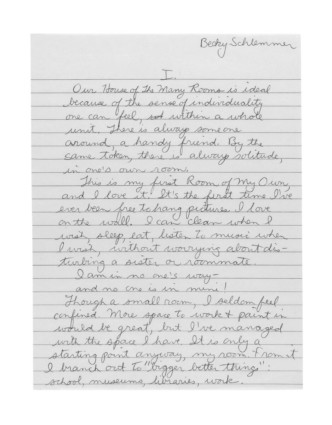 Becky Schlemmer
I.
Our House of the Many Rooms is ideal
because of the sense of individuality
one can feel, within a whole
unit. There is always someone
around, a handy friend. By the
same token, there is always solitude,
in one's own room.
This is my first Room of My Own,
and I love it! It's the first time I've
ever been free to hang pictures I love
on the wall. I can clean when I
wish, sleep, eat, listen to music when
I wish, without worrying about dis-
turbing a sister or roommate.
I am in no one's way—
and no one is in mine!
Though a small room, I seldom feel
confined. More space to work & paint in
would be great, but I've managed
with the space I have. It is only a
starting point anyway, my room. From it
I branch out to "bigger better things":
school, museums, libraries, work.